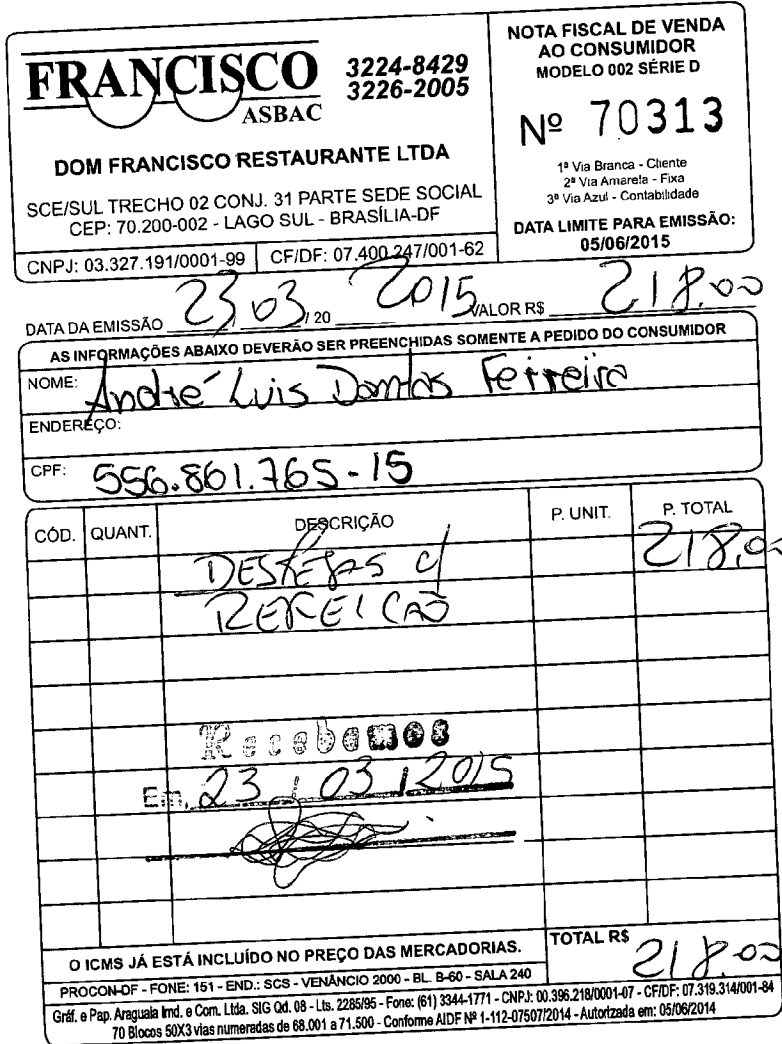 FRANCISCO
ASBAC
3224-8429
3226-2005
DOM FRANCISCO RESTAURANTE LTDA
SCE/SUL TRECHO 02 CONJ. 31 PARTE SEDE SOCIAL
CEP: 70.200-002 - LAGO SUL - BRASÍLIA-DF
CNPJ: 03.327.191/0001-99 CF/DF: 07.400.247/001-62
NOTA FISCAL DE VENDA
AO CONSUMIDOR
MODELO 002 SÉRIE D
Nº 70313
1ª Via Branca - Cliente
2ª Via Amarela - Fixa
3ª Via Azul - Contabilidade
DATA LIMITE PARA EMISSÃO:
05/06/2015
DATA DA EMISSÃO 23 / 03 / 20 2015 VALOR R$ 218,00
AS INFORMAÇÕES ABAIXO DEVERÃO SER PREENCHIDAS SOMENTE A PEDIDO DO CONSUMIDOR
NOME: André Luis Dantas Ferreira
ENDEREÇO:
CPF: 556.861.765-15
CÓD. QUANT. DESCRIÇÃO P. UNIT. P. TOTAL
DESPESAS C/ 218,00
REFEIÇÃO
Recebemos
Em, 23 / 03 / 2015
O ICMS JÁ ESTÁ INCLUÍDO NO PREÇO DAS MERCADORIAS. TOTAL R$ 218,00
PROCON-DF - FONE: 151 - END.: SCS - VENÂNCIO 2000 - BL. B-60 - SALA 240
Gráf. e Pap. Araguaia Ind. e Com. Ltda. SIG Qd. 08 - Lts. 2285/95 - Fone: (61) 3344-1771 - CNPJ: 00.396.218/0001-07 - CF/DF: 07.319.314/001-84
70 Blocos 50X3 vias numeradas de 68.001 a 71.500 - Conforme AIDF Nº 1-112-07507/2014 - Autorizada em: 05/06/2014